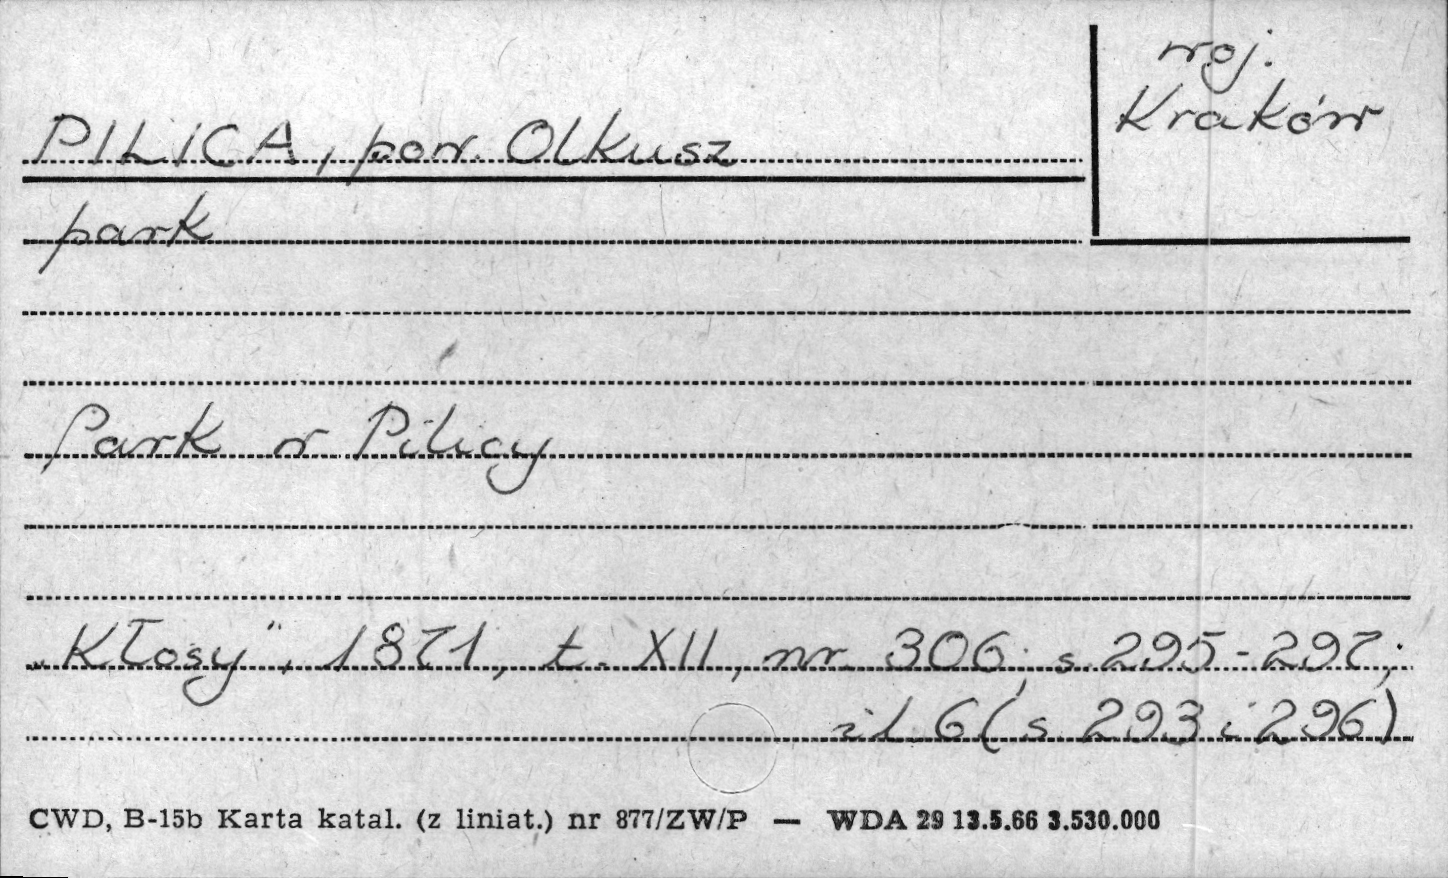 woj.
Kraków
PILICA, pow. Olkusz
park
Park w Pilicy
„Kłosy", 1871, t. XII, nr 306, s. 295-297;
il. 6 (s. 293 i 296)
CWD, B-15b Karta katal. (z liniat.) nr 877/ZW/P — WDA 29 13.5.66 3.530.000